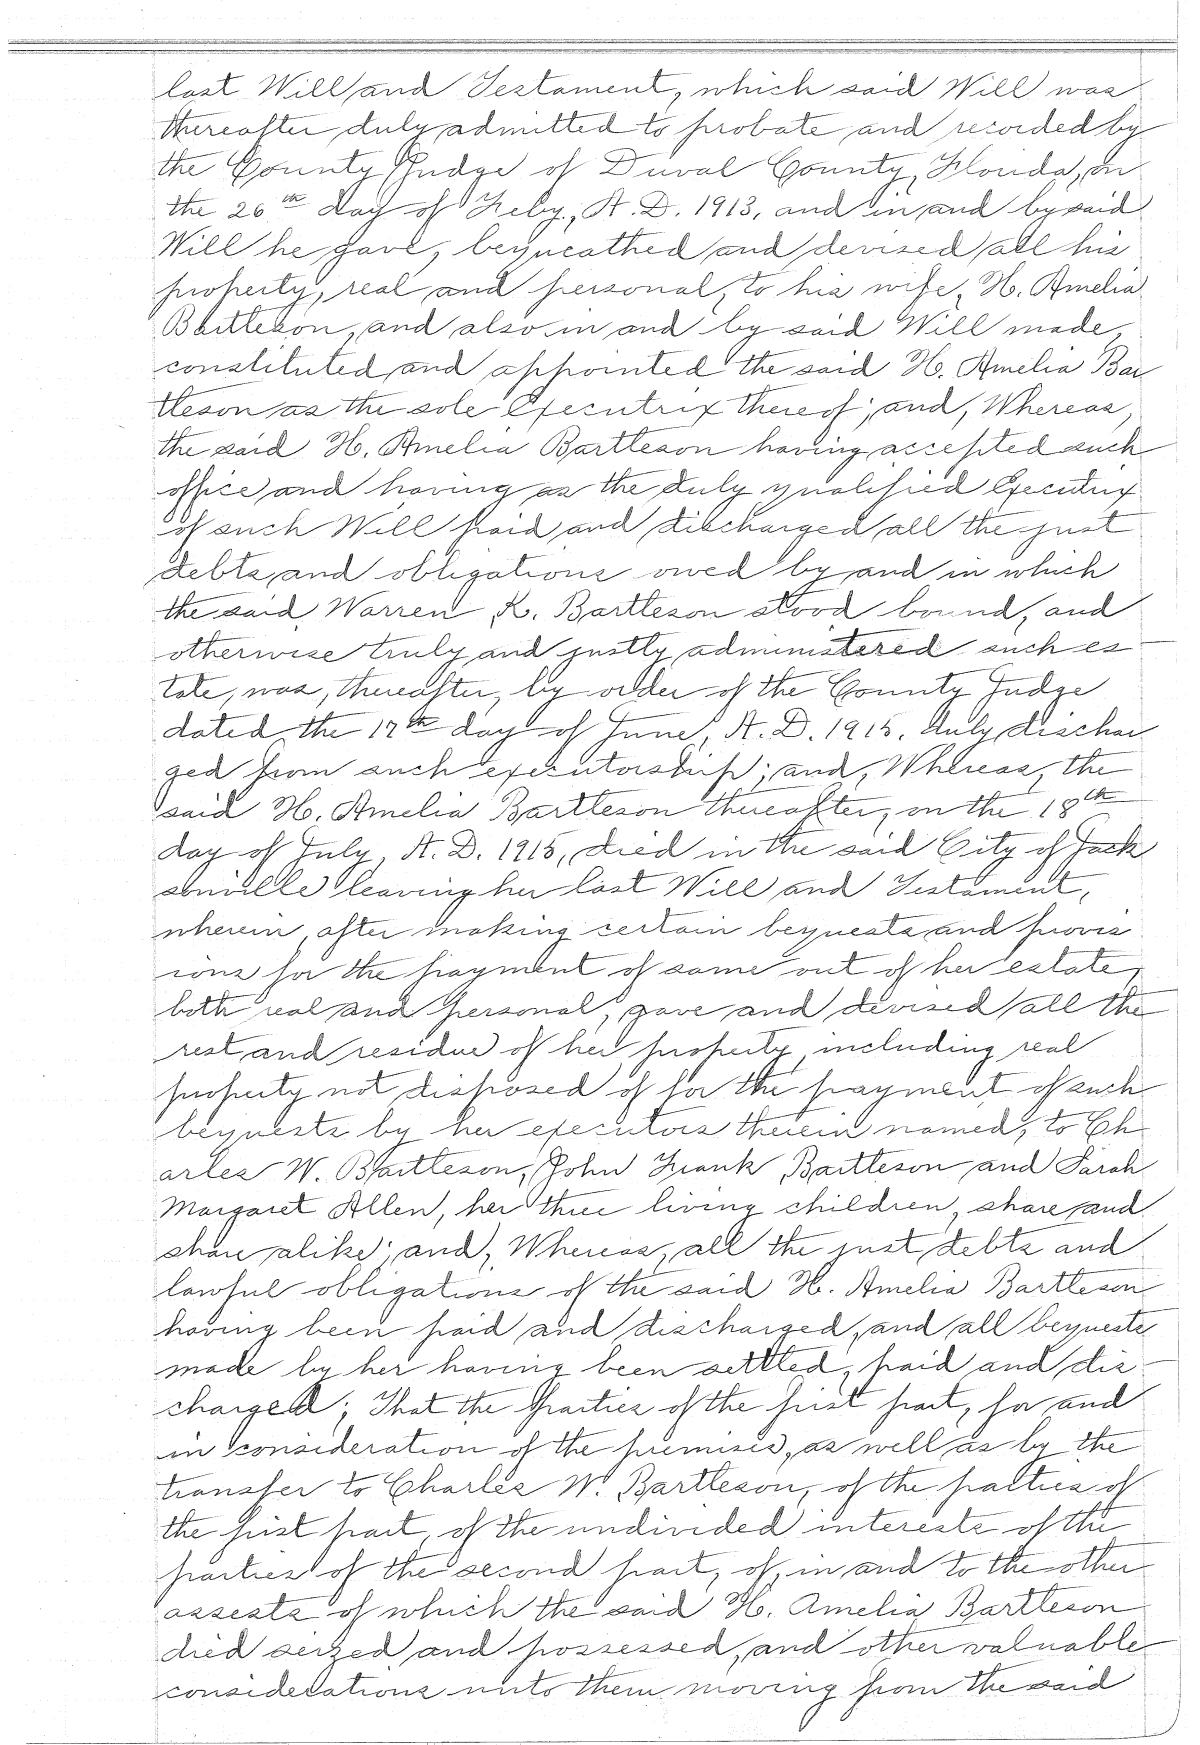 last Will and Testament, which said Will was
thereafter duly admitted to probate and recorded by
the County Judge of Duval County, Florida, on
the 26th day of Feby., A.D. 1913, and in and by said
Will he gave, bequeathed and devised all his
property, real and personal, to his wife, H. Amelia
Bartleson, and also in and by said Will made,
constituted and appointed the said H. Amelia Bar
tleson as the sole Executrix thereof; and, Whereas,
the said H. Amelia Bartleson having accepted such
office and having as the duly qualified Executrix
of such Will paid and discharged all the just
debts and obligations owed by and in which
the said Warren K. Bartleson stood bound, and
otherwise truly and justly administered such es
tate, was, thereafter, by order of the County Judge
dated the 17th day of June, A.D. 1915, duly dischar
ged from such executorship; and, Whereas, the
said H. Amelia Bartleson thereafter, on the 18th
day of July, A.D. 1915, died in the said City of Jack
sonville leaving her last Will and Testament,
wherein, after making certain bequests and provis
ions for the payment of same out of her estate,
both real and personal, gave and devised all the
rest and residue of her property, including real
property not disposed of for the payment of such
bequests by her executors therein named, to Ch
arles W. Bartleson, John Frank Bartleson and Sarah
Margaret Allen, her three living children, share and
share alike; and, Whereas, all the just debts and
lawful obligations of the said H. Amelia Bartleson
having been paid and discharged, and all bequests
made by her having been settled, paid and dis
charged; That the parties of the first part, for and
in consideration of the premises, as well as by the
transfer to Charles W. Bartleson, of the parties of
the first part, of the undivided interests of the
parties of the second part, of, in and to the other
assests of which the said H. Amelia Bartleson
died seized and possessed, and other valuable
considerations unto them moving from the said